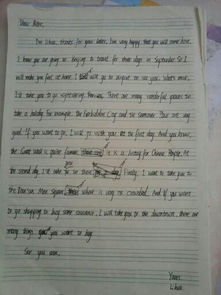 Dear Mike,
I'm Lihua, thanks for your letter. I'm very happy that you will come here.
I hope you are going to Beijing to travel for three days in September. So I
will make you feel at home. I will go to airport to see you. What's more,
I'd take you to go sightseeing. There are many wonderful places to
take a holiday. For example, the Forbidden City and the Summer Palace are very
good. If you want to go, I will go with you at the first day. And you know,
the Great Wall is quite famous. It is a for Chinese People. At
the second day, I'd take you to there. Finally, I want to take you to
the Tian'an Men Square where is very crowded. And if you want
to go shopping to buy some souvenir, I will take you to the downtown. There are
many things you want to buy.
See you soon.
Yours,
Lihua